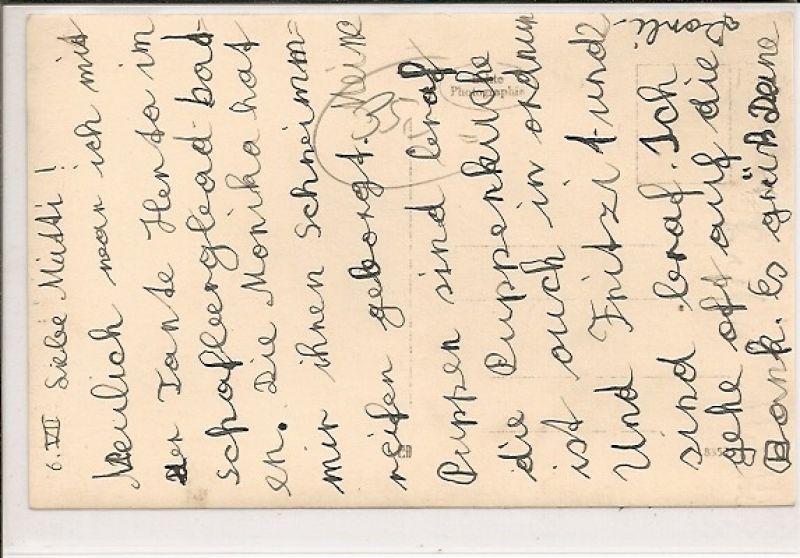 6. VII Liebe Mutti!
Neulich war ich mit
der Tante Herta im
Schafbergbad bad-
en. Die Monika hat
mir ihren Schwimm-
reifen geborgt. Meine
Puppen sind brav
die Puppenküche
ist auch in ordnun
Und Fritzi t und
sind brav. Ich
gehe oft auf die
Bank. Es grüßt Deine
Photographie